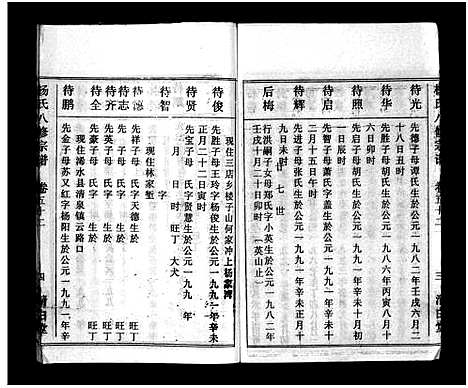 杨氏八修宗谱 卷五十二 三 清白堂
待光
先德子母谭氏生於公元一九八二年壬戌六月二
十八日丑时
待华
先胜子母胡氏生於公元一九九一年辛未
六日卯时
待照
先启子母胡氏生於公元一九九一年辛未十月初
待启
先智子母萧氏字盖生於公元一九九一年辛未
二月十五日午时
待辉
先进子母氏字生於公元一九九一年辛未正月十
九日未时
廿七世
后梅
行洪嗣子女母郑氏字小英生於公元一九八二年
壬戌十月二十日卯时（一英山止）
现住三店乡楼子山何家冲上杨家湾
待俊
先胜子母王玲字杨俊生於公元一九九一年辛未
正月二十二日寅时
待贤
先宝子母氏字贤慧生於公元一九九 年
月 日 时 旺丁 大犬
待智
字
现住林家堑
待德
先祥子母氏字天德生於
待志
先 子母氏字 生於 旺丁
待齐
先英子母氏字 生於 旺丁
待全
先豪子母氏字 生於 旺丁
现住浠水县清泉镇云路口
待鹏
先金子母苏又红字杨阳生於公元一九九一年辛
杨氏八修宗谱 卷五十二 四 清白堂